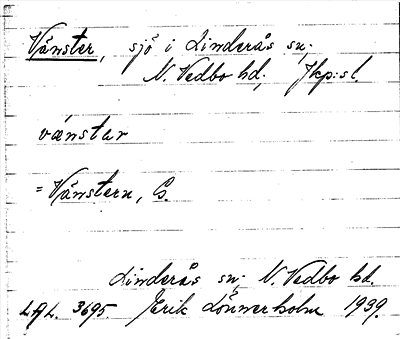 Vänster, sjö i Linderås sn;
N. Vedbo hd; Jkp:s l.
vǽnstər
= Vänstern, G.
Linderås sn; N. Vedbo hd.
LAL. 3695. Erik Lönnerholm 1939.